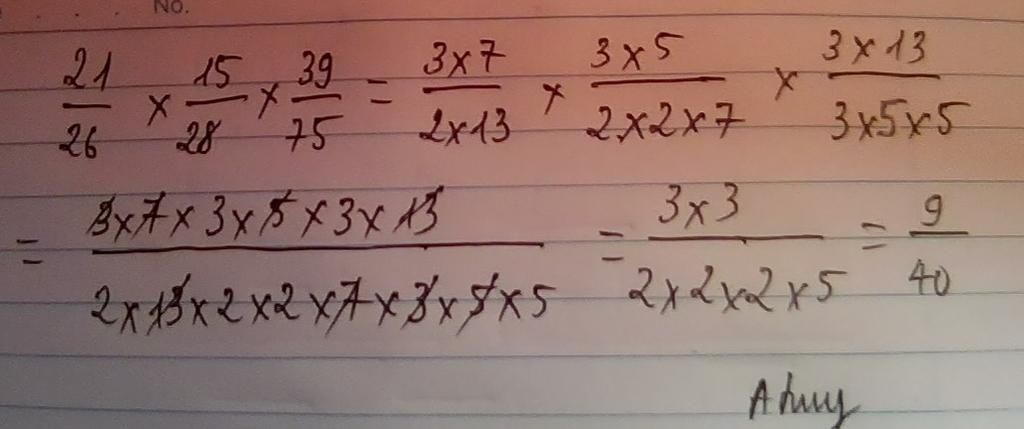 No.
21/26 × 15/28 × 39/75 = 3×7/2×13 × 3×5/2×2×7 × 3×13/3×5×5
= 3×7×3×5×3×13/2×13×2×2×7×3×5×5 = 3×3/2×2×2×5 = 9/40